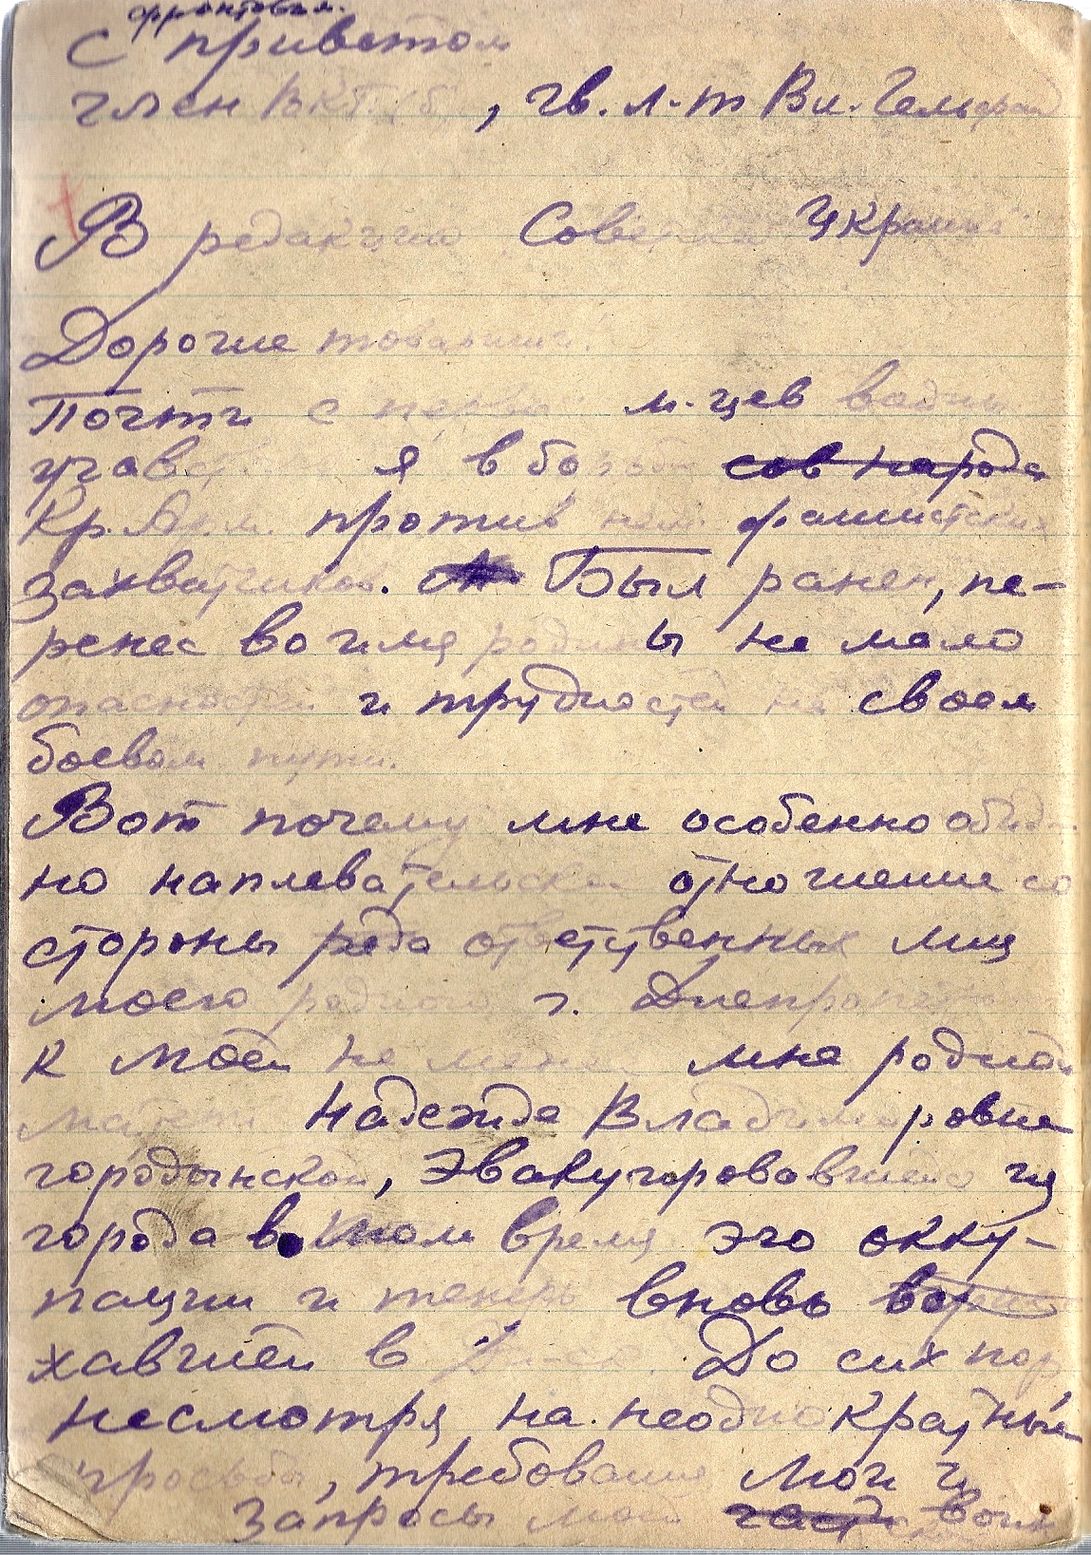 фронтовым
С приветом
член ВКП(б), гв. л-т Вл. Гельфанд
В редакцию Советской Украины
Дорогие товарищи!
Почти с первых м-цев войны
участвую я в борьбе сов народа
Кр. Арм. против нем. фашистских
захватчиков. Был ранен, пе-
ренес во имя родины не мало
опасностей и трудностей на своем
боевом пути.
Вот почему мне особенно обид-
но наплевательское отношение со
стороны ряда ответственных лиц
моего родного г. Днепропетр
к моей не менее мне родной
матери Надежде Владимировне
Городынской, эвакуировавшейся из
города во время его окку-
пации и теперь вновь
хавшей в Дн-ск. До сих пор
несмотря на неоднократные
просьбы, требования мои и
запросы моей части воин